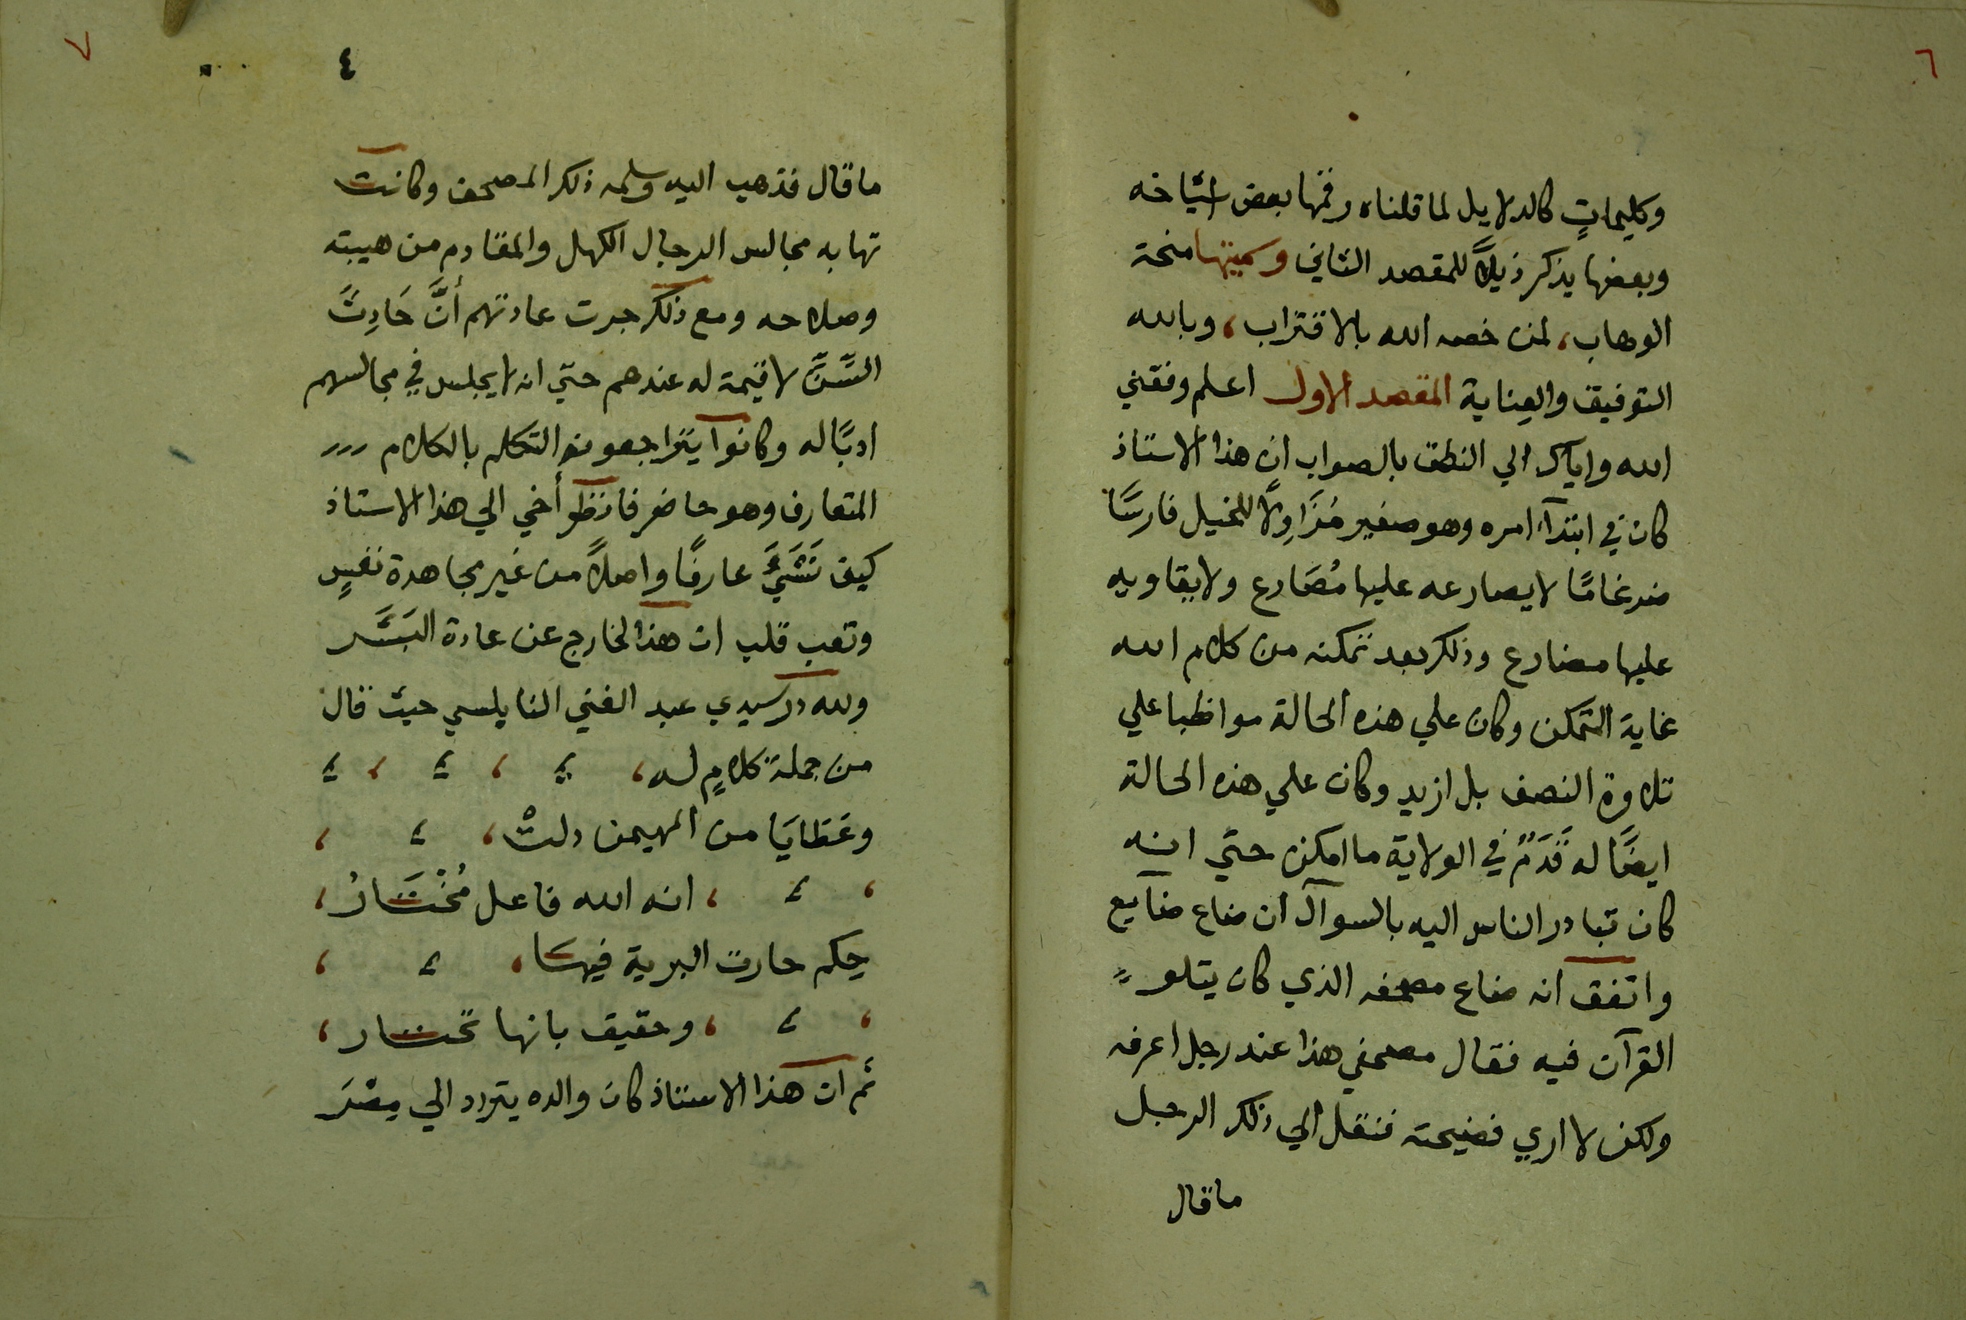 ٦
وكليماتٍ كالدلايل لما قلناه رقمها بعض اشياخه
وبعضها يذكر ذيلًا للمقصد الثاني وسميتها منحة
الوهاب، لمن خصه الله بالاقتراب، وبالله
التوفيق والعناية المقصد الاول اعلم وفقني
الله واياك الي النطق بالصواب ان هذا الاستاذ
كان في ابتدآء امره وهو صغير مُزَاوِلًا للخيل فارسًا
ضرغامًا لا يصارعه عليها مُصَارع ولا يقاويه
عليها مضارع وذلك بعد تمكنه من كلام الله
غاية التمكن وكان علي هذه الحالة مواظبا علي
تلاوة النصف بل ازيد وكان علي هذه الحالة
ايضًا له قَدَمٌ في الولاية ما امكن حتي انه
كان تبادر الناس اليه بالسوآل ان ضاع ضايع
واتفق انه ضاع مصحفه الذي كان يتلو
القرآن فيه فقال مصحفي هذا عند رجل اعرفه
ولكن لا اري فضيحته فنقل الي ذلك الرجل
ما قال
٧
٤
ما قال فذهب اليه وسلمه ذلك المصحف وكانت
تهابه مجالس الرجال الكهل والمقادم من هيبته
وصلاحه ومع ذلك جرت عادتهم أنَّ حَادِثَ
السَّنِّ لا قيمة له عندهم حتي انه لا يجلس في مجالسهم
ادبًا له وكانوا يتراجعونه التكلم بالكلام
المتعارف وهو حاضر فانظر أخي الي هذا الاستاذ
كيف نَشَيءَ عارفًا واصلًا من غير مجاهدة نفسٍ
وتعب قلب ان هذا لخارج عن عادة البَشَر
ولله در سيدي عبد الغني النابلسي حيث قال
من جملة كلامٍ له،
وعَطَايَا من المهيمن دلتْ،
، انه الله فاعل مُخْتَارُ،
حِكم حارت البرية فيها،
، وحقيق بانها تحتار،
ثم ان هذا الاستاذ كان والده يتردد الي مِصْرَ